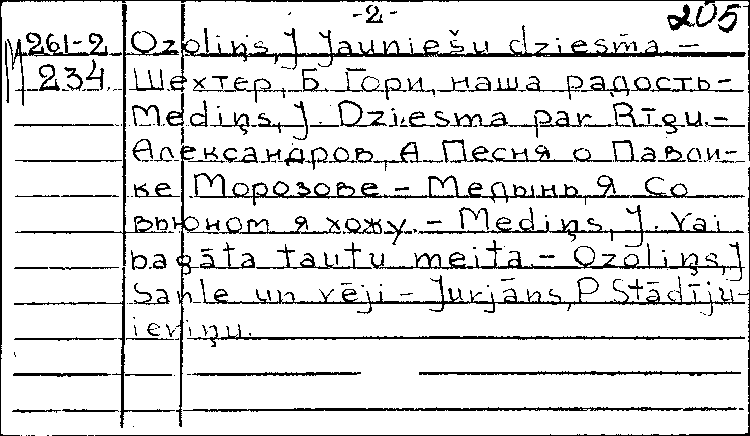 -2-
205
M 261-2
234
Ozoliņš, J Jauniešu dziesma. –
Шехтер, Б. Гори, наша радость –
Mediņš, J. Dziesma par Rīgu. –
Александров, А Песня о Павли-
ке Морозове – Медынь, Я Со
вьюном я хожу. – Mediņš, J. Vai
bagāta tautu meita – Ozoliņš, J
Saule un vēji – Jurjāns, P Stādīju
ieviņu.